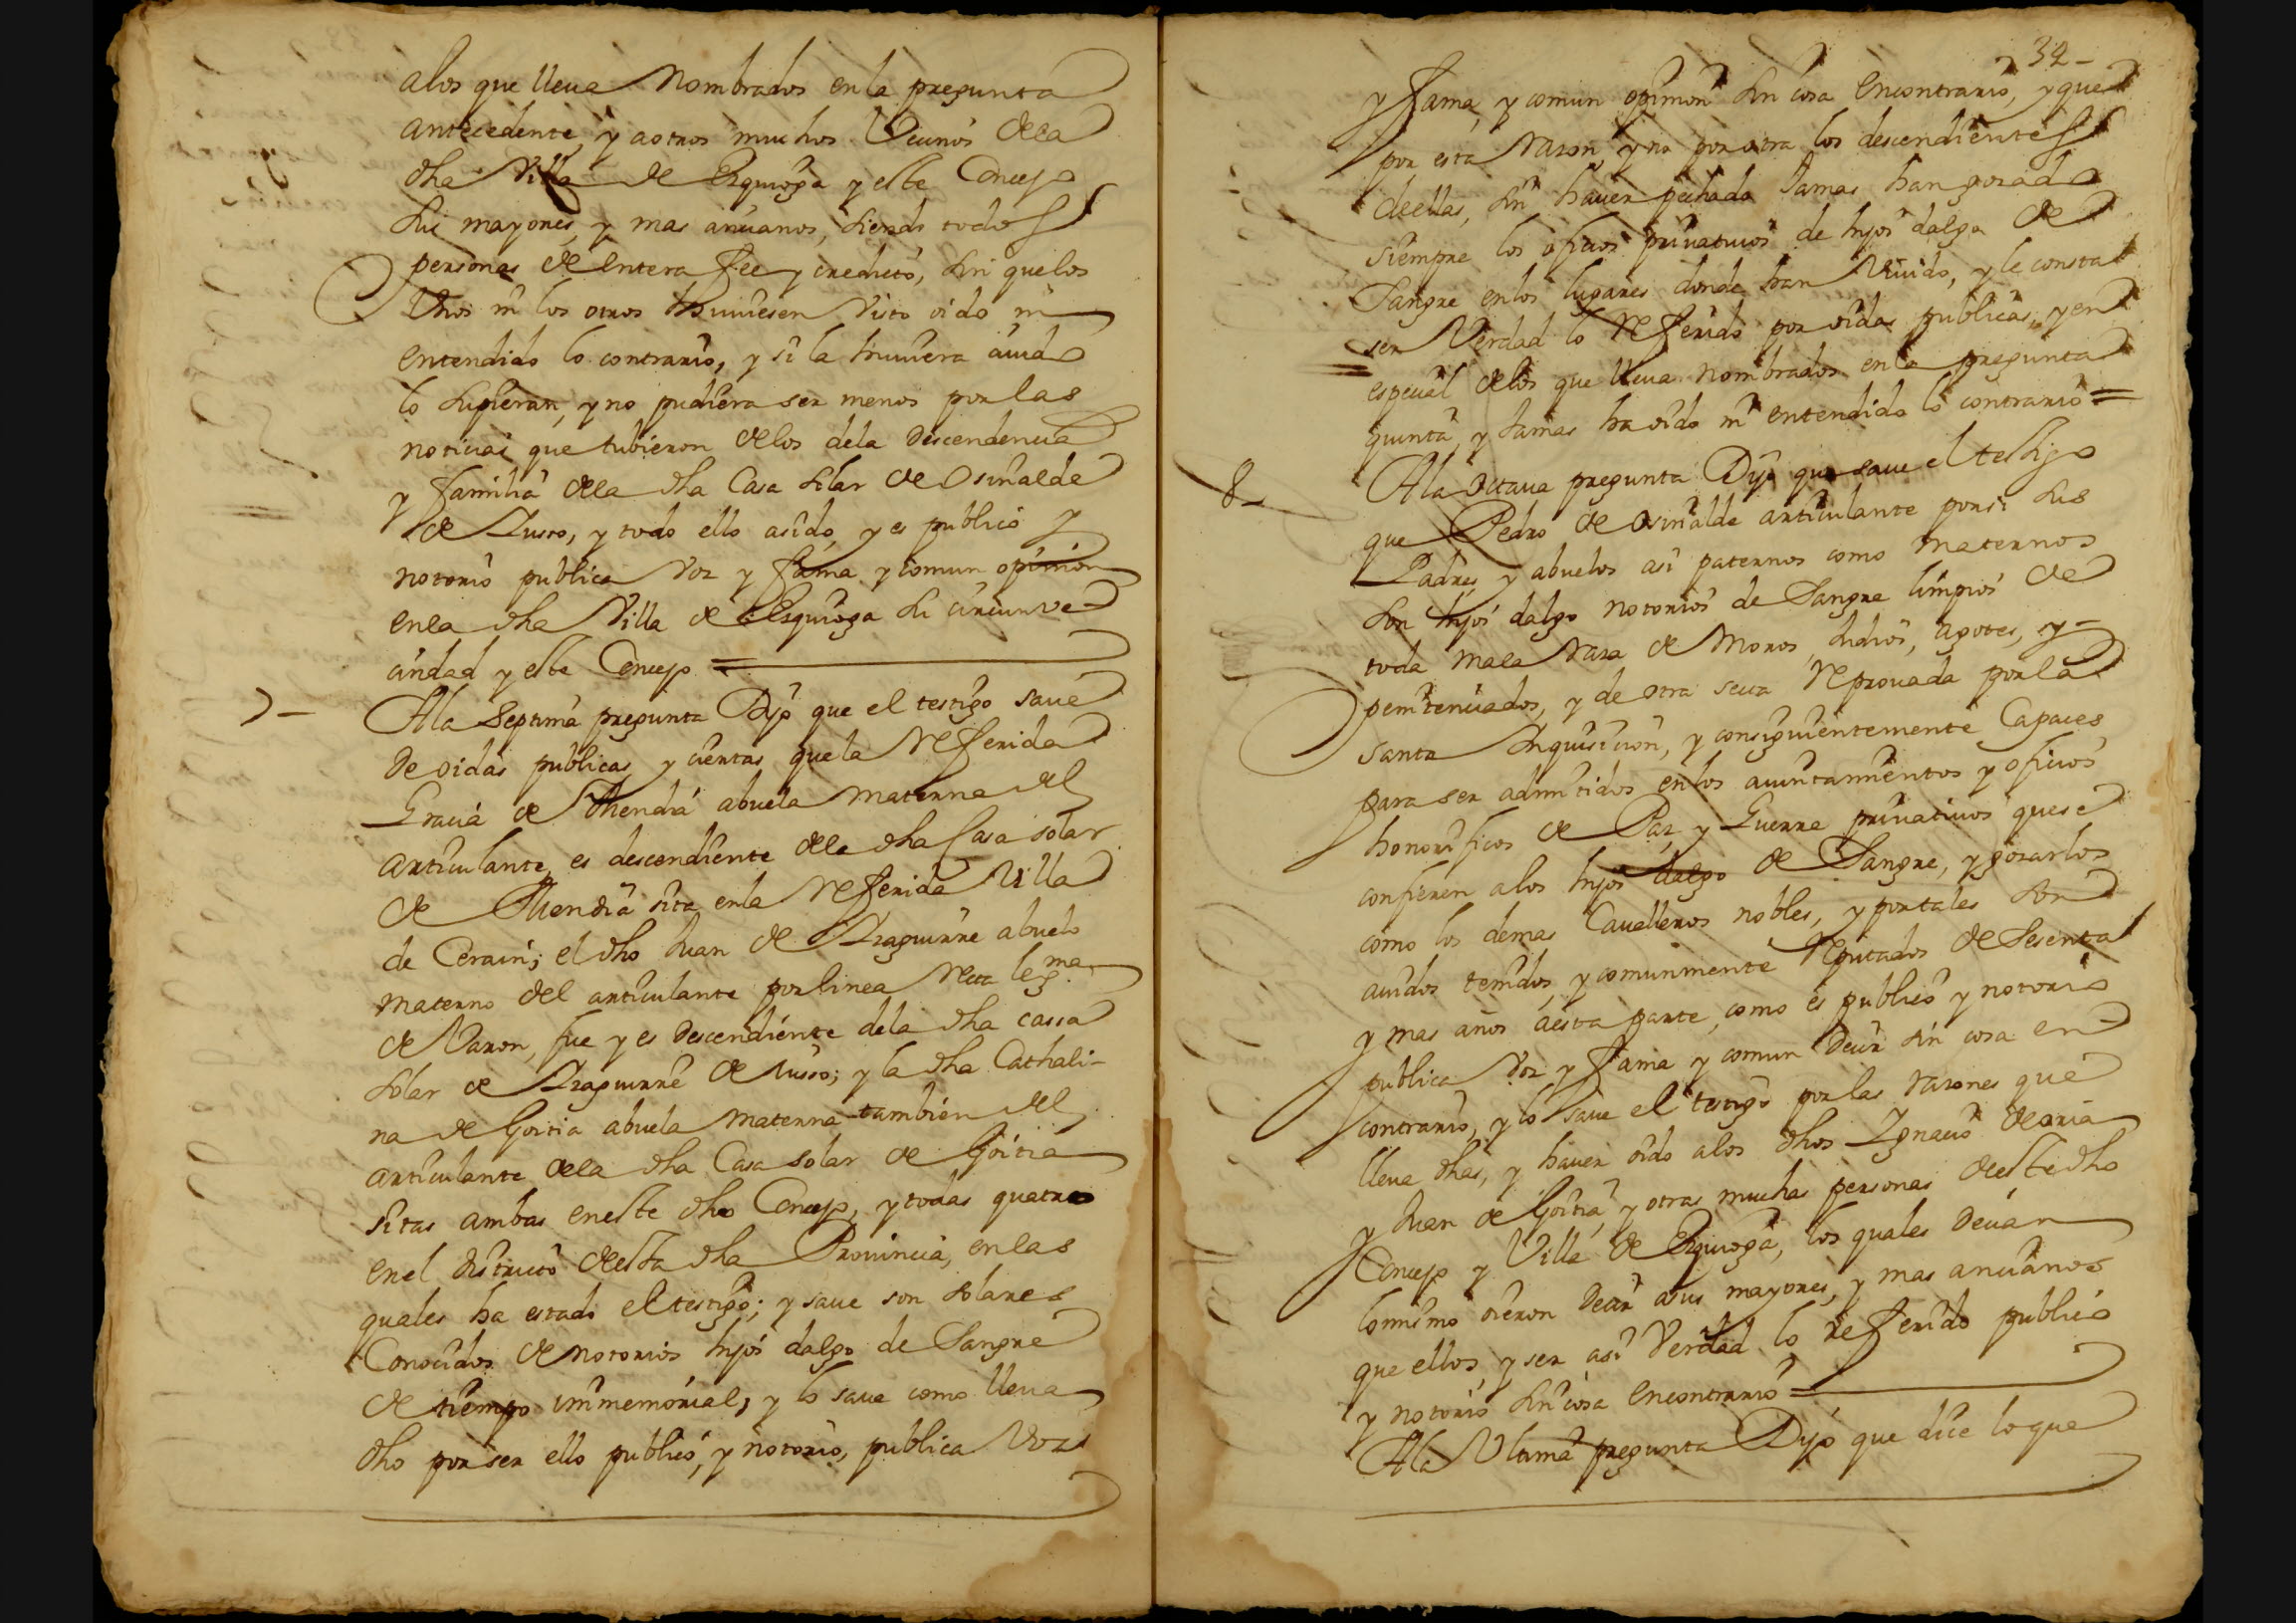 alos que lleua Nombrados en la pregunta
antecedente, y aotros muchos Vecinos dela
dha Villa de Ezquioga y este Concejo
sus mayores, y mas ancianos, siendo todos
personas de entera fee y credito, sin que los
Vnos ni los otros huuiesen visto oido ni
entendido lo contrario, y si la huuiera auido
lo supieran, y no pudiera ser menos por las
noticias que tubieron delos dela Descendencia
y familia dela dha Casa solar de Osinalde
de Zusso, y todo ello asido, y es publico y
notorio publica voz y fama y comun opinion
enla dha Villa de Ezquioga su circunve-
cindad y este Concejo =
7- Ala Septima pregunta Dijo que el testigo saue
De oidas publicas y ciertas que la referida
Gracia de Mendia abuela materna del
articulante, es descendiente dela dha Casa solar
de Mendia sita en la referida Villa
de Cerain; el dho Juan de Izaguirre abuelo
materno del articulante por linea recta legma
de Varon, fue y es Descendiente dela dha cassa
solar de Izaguirre de Zusso; y la dha Cathali-
na de Goitia abuela materna tambien del
articulante dela dha Casa solar de Goitia
sitas ambas en este dho Concejo, y todas quatro
en el distrito desta dha Prouincia, en las
quales ha estado el testigo; y saue son solares
Conocidos de notorios hijos dalgo de Sangre
de tiempo immemorial, y lo saue como lleua
dho por ser ello publico, y notorio, publica Voz
34-
y fama, y comun opinion sin cosa Encontrario, y que
por esta razon, y no por otra los descendientes
deellas, sin hauer pechado Jamas han gozado
siempre los oficios priuatiuos de hijos dalgo de
Sangre en los lugares donde han Viuido, y le consta
ser Verdad lo referido por oidas publicas, y en
especial delos que lleua nombrados en la pregunta
quinta, y Jamas ha oido ni entendido lo contrario =
8- Ala Octaua pregunta Dijo que saue el testigo
que Pedro de Osinalde articulante por si sus
Padres, y abuelos asi paternos como maternos
son hijos dalgo notorios de Sangre limpios de
toda mala raza de Moros, Judios, agotes, y-
penitenciados, y de otra secta reprouada por la
santa Inquisicion, y consiguientemente Capaces
para ser admitidos en los aiuntamientos y oficios
honorificos de Paz, y Guerra priuatiuos que se
confieren a los hijos dalgo de Sangre, y gozarlos
como los demas Caualleros nobles, y por tales son
auidos tenidos, y comunmente Reputados de Sesenta
y mas años aesta parte, como es publico y notorio
publica voz y fama y comun decir sin cosa en
contrario, y lo saue el testigo por las razones que
lleua dhas, y hauer oido alos dhos Ignacio de aria
y Juan de Goitia, y otras muchas personas deeste dho
Concejo y Villa de Ezquioga, los quales Decian
lo mismo oieron Decir asus mayores, y mas ancianos
que ellos, y ser asi Verdad lo referido publico
y notorio sin cosa Encontrario =
Ala Vltima pregunta Dijo que dice lo que